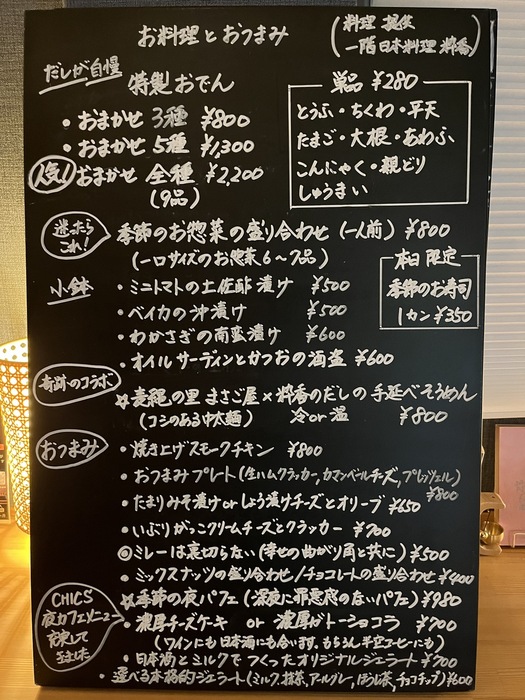 お料理とおつまみ
(料理 提供
一階日本料理 粋香)
だしが自慢
特製おでん
・おまかせ 3種 ¥800
・おまかせ 5種 ¥1,300
人気!
おまかせ 全種 ¥2,200
(9品)
単品 ¥280
とうふ・ちくわ・平天
たまご・大根・あわふ
こんにゃく・親どり
しゅうまい
迷ったらこれ!
季節のお惣菜の盛り合わせ (一人前) ¥800
(一口サイズのお惣菜6〜7品)
本日限定
季節のお寿司
1カン ¥350
小鉢
・ミニトマトの土佐酢漬け ¥500
・ベイカの沖漬け ¥500
・わかさぎの南蛮漬け ¥600
・オイルサーディンとかつおの酒盗 ¥600
奇跡のコラボ
☆麦縄の里 まさご屋×粋香のだしの 手延べそうめん
(コシのある中太麺) 冷or温 ¥800
おつまみ
・焼き上げスモークチキン ¥800
・おつまみプレート(生ハムクラッカー, カマンベールチーズ, プレッツェル)
¥800
・たまりみそ漬け or しょう漬けチーズとオリーブ ¥650
・いぶりがっこクリームチーズとクラッカー ¥700
◎ミレーは裏切らない(幸せの曲がり角と共に) ¥500
・ミックスナッツの盛り合わせ/チョコレートの盛り合わせ ¥400
CHICS
夜カフェメニュー
充実して
ました
☆季節の夜パフェ(深夜に罪悪感のないパフェ) ¥980
・濃厚チーズケーキ or 濃厚ガトーショコラ ¥700
(ワインにも日本酒にも合います。もちろん平立コーヒーにも)
・日本酒とミルクでつくったオリジナルジェラート ¥700
・選べる本格的ジェラート(ミルク, 抹茶, アールグレイ, ほうじ茶, チョコチップ) ¥600